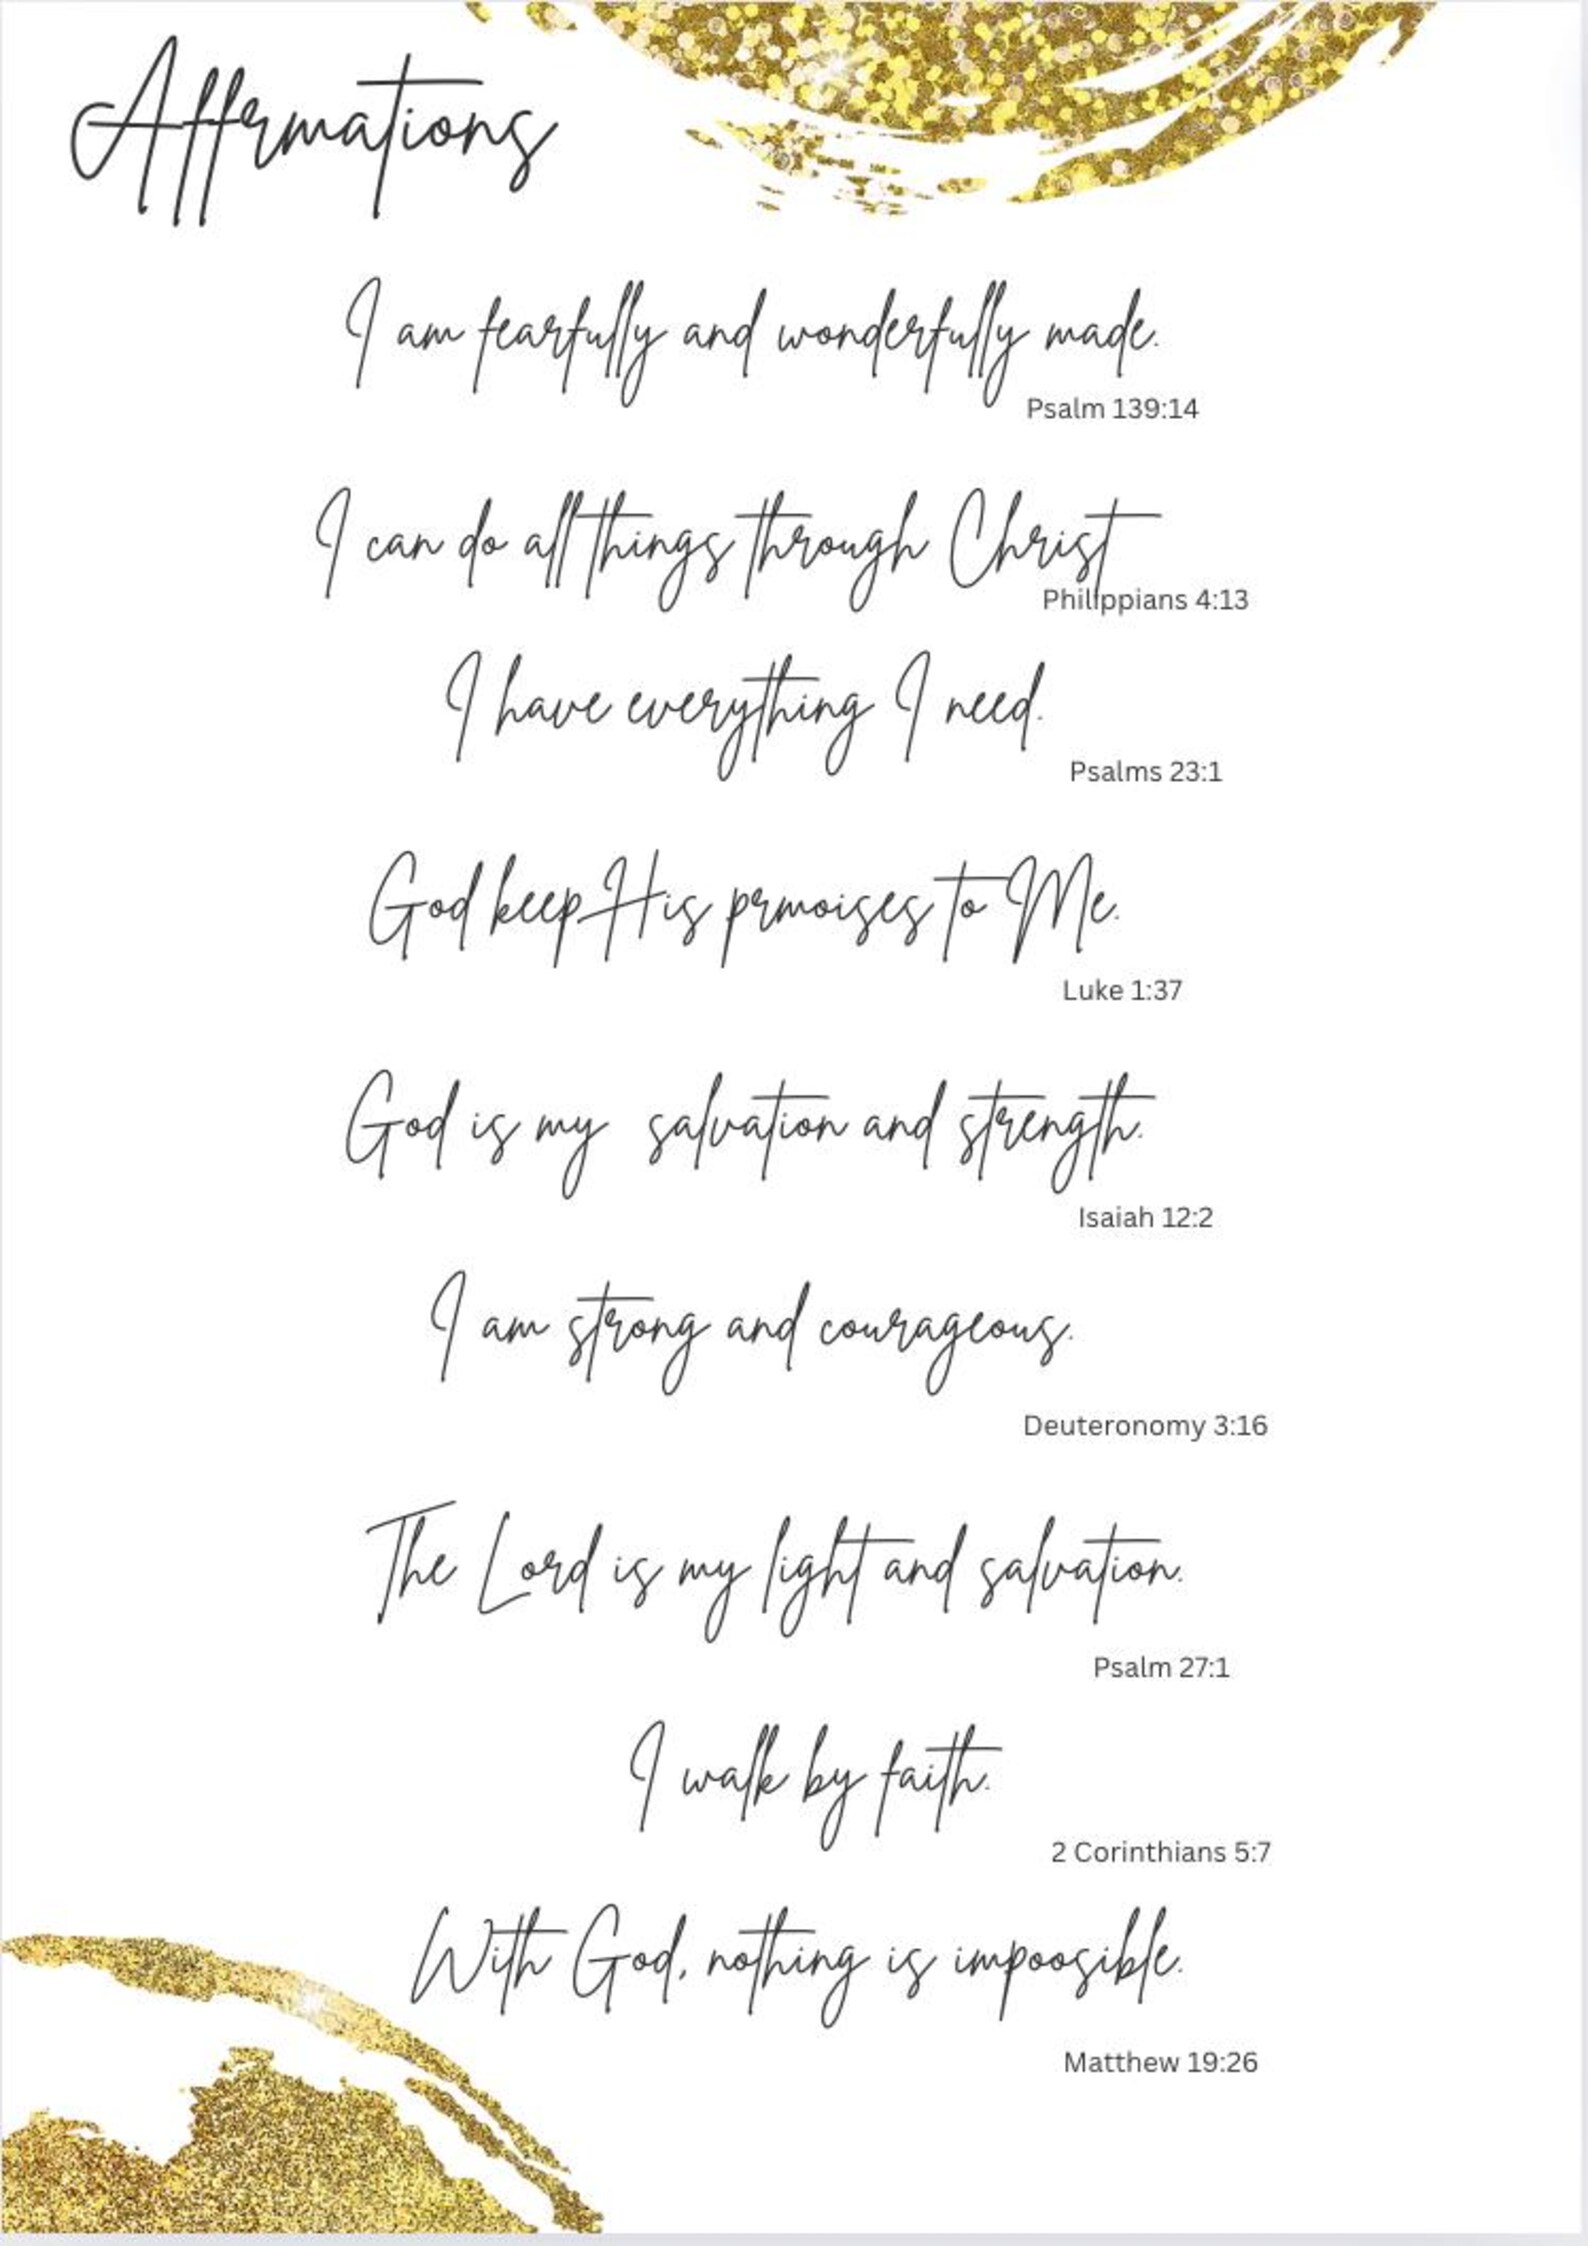 Affrmations
I am fearfully and wonderfully made.
Psalm 139:14
I can do all things through Christ
Philippians 4:13
I have everything I need.
Psalms 23:1
God keep His prmoises to Me.
Luke 1:37
God is my salvation and strength.
Isaiah 12:2
I am strong and courageous.
Deuteronomy 3:16
The Lord is my light and salvation.
Psalm 27:1
I walk by faith.
2 Corinthians 5:7
With God, nothing is impoosible.
Matthew 19:26